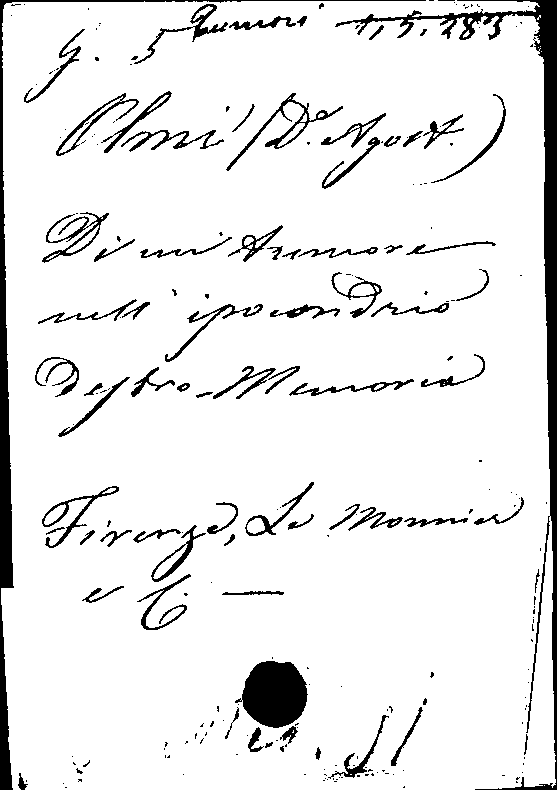 Tumori 1, 5, 283
G. 5
Olmi (Dr. Agost.)
Di un tumore
nell' ipocondrio
destro - Memoria
Firenze, Le Monnier
e C. —
Mis.